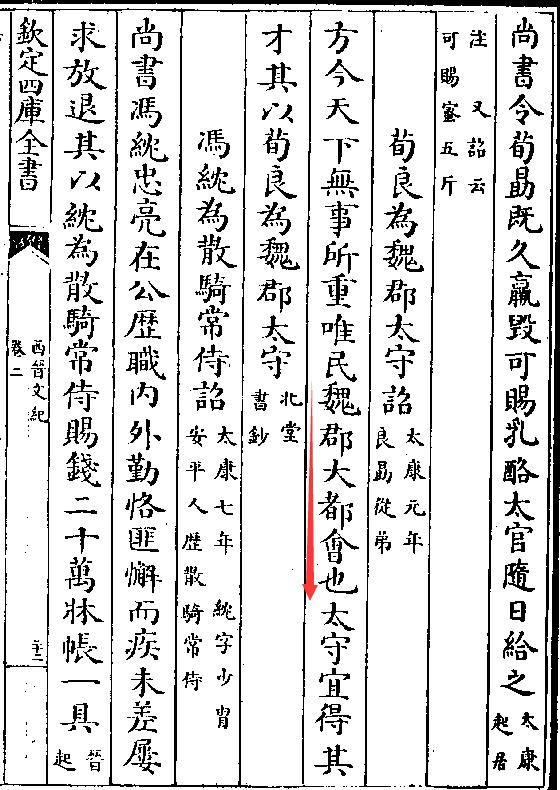 尚書令荀勗既久羸毀可賜乳酪太官隨日給之太康起居
注 又詔云可賜蜜五斤
荀良為魏郡太守詔太康元年良勗從弟
方今天下無事所重唯民魏郡大都會也太守宜得其
才其以荀良為魏郡太守北堂書鈔
馮紞為散騎常侍詔太康七年 紞字少胄安平人歴散騎常侍
尚書馮紞忠亮在公歴職内外勤恪匪懈而疾未差屢
求放退其以紞為散騎常侍賜錢二十萬牀帳一具晉起
欽定四庫全書
西晉文紀
卷二
二十二